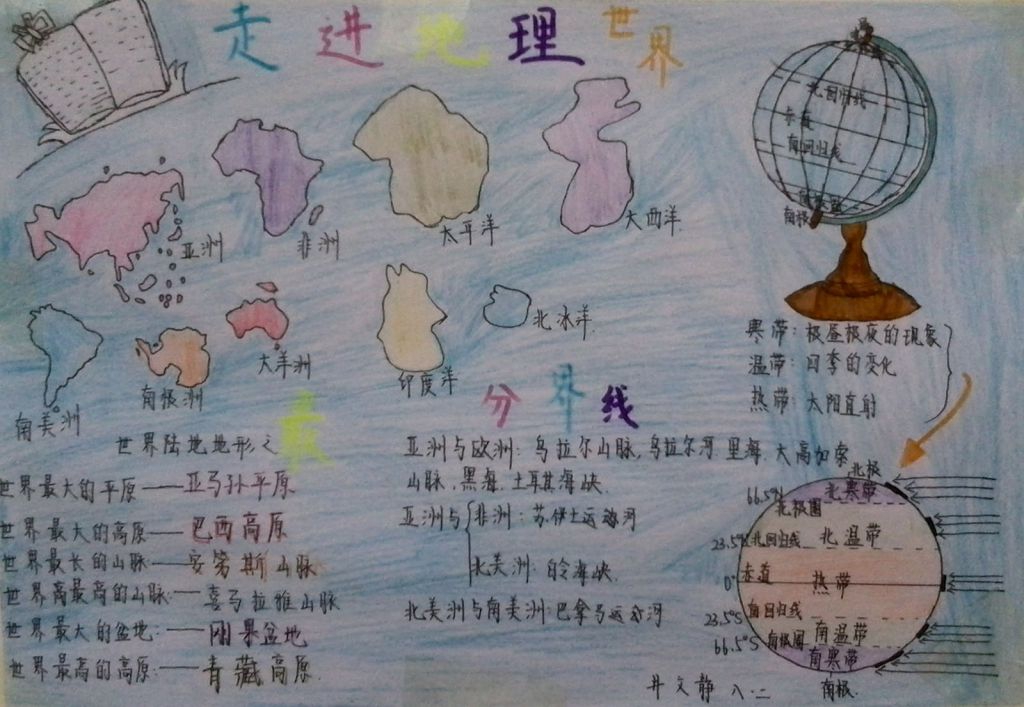 走进地理世界
北回归线
赤道
南回归线
南极
亚洲
非洲
太平洋
大西洋
南美洲
南极洲
大洋洲
印度洋
北冰洋
寒带：极昼极夜的现象
温带：四季的变化
热带：太阳直射
世界陆地地形之最
世界最大的平原——亚马孙平原
世界最大的高原——巴西高原
世界最长的山脉——安第斯山脉
世界最高的山脉：——喜马拉雅山脉
世界最大的盆地：——刚果盆地
世界最高的高原：——青藏高原
分界线
亚洲与欧洲：乌拉尔山脉，乌拉尔河 里海，大高加索
山脉，黑海，土耳其海峡
亚洲与
非洲：苏伊士运河
北美洲：白令海峡
北美洲与南美洲：巴拿马运河
北极
北寒带
66.5°N
北极圈
23.5°N 北回归线 北温带
0° 赤道 热带
23.5°S 南回归线
南温带
66.5°S 南极圈
南寒带
南极
井文静 八.二